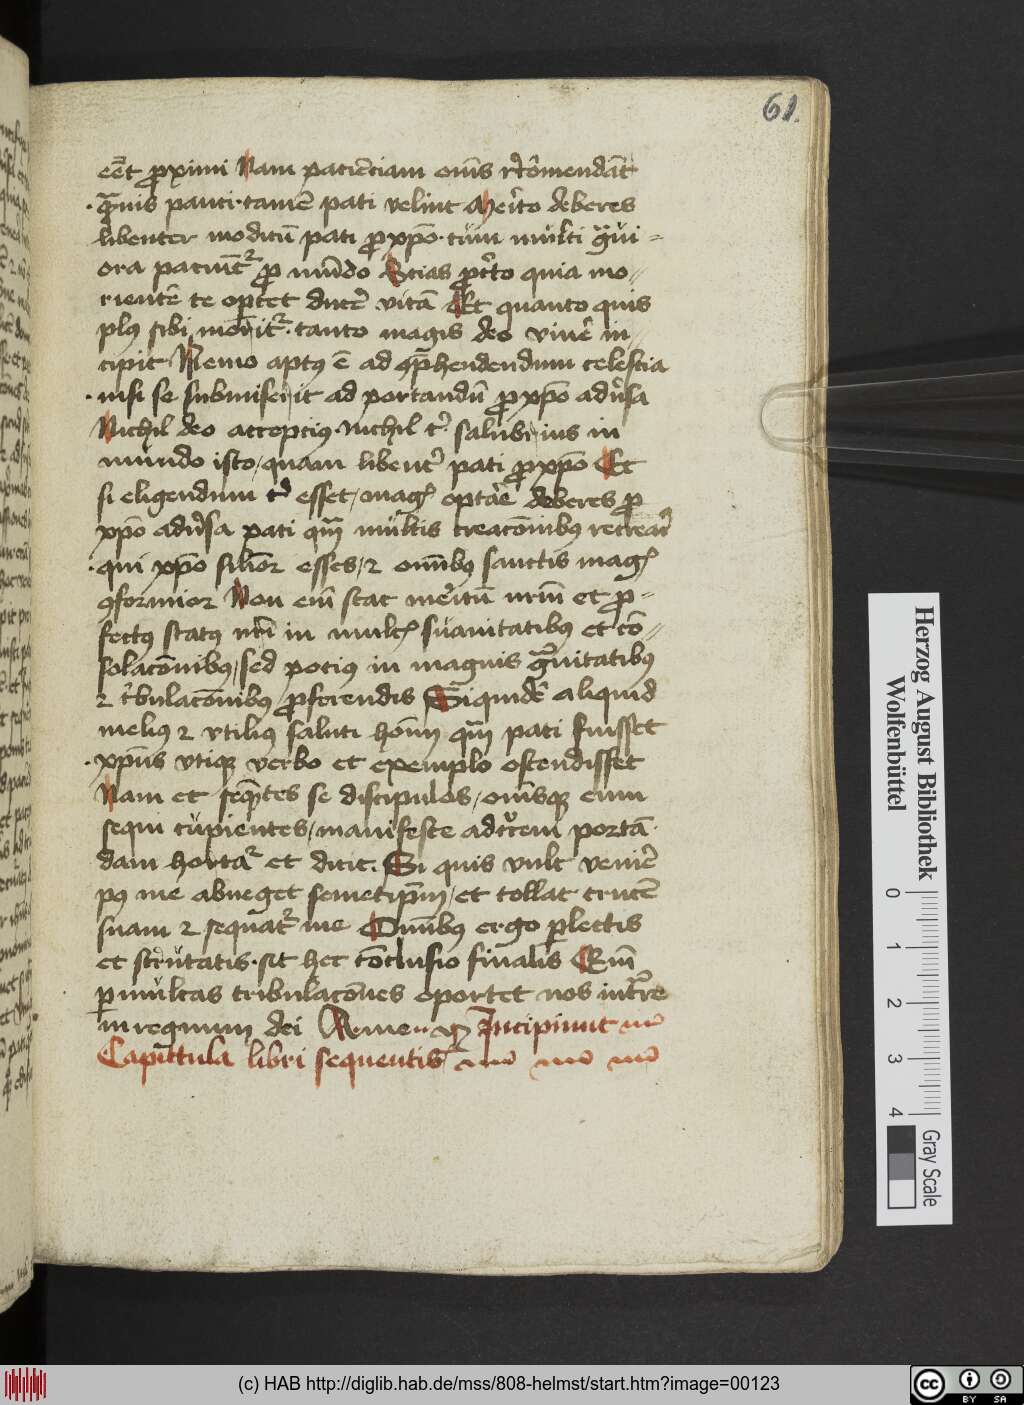 61.
eēt ꝓximi Nam paciēciam om̄s recōmendāt
qͣmis pauci tamē pati velint Meͥto deberes
libenter modicū pati ꝓ xp̄o cum multi gͣui-
ora paciūt᷑ ꝓ mūdo Scias ꝓ cͤto quia mo-
rientē te oportet ducer̄ vitā Et quanto quis
plꝰ sibi morit᷑ tanto magis deo viuē in-
cipit Nemo aptꝰ ē ad ꝯp̄hendendum celestia
nisi se submiserit ad portandū ꝓ xp̄o adūsa
Nichil deo accepciꝰ nichil t᷑ salubrius in
mundo isto quam libent᷑ pati ꝓ xp̄o Et
si eligendum t᷑ esset magꝭ optar̄e deberes ꝓ
xp̄o adūsa pati qͣm multis creacōnibꝰ recrear̄
qui xp̄o silior esses ⁊ om̄ibꝰ sanctis magꝭ
ꝯformior Non em̄ stat meͥtū nr̄m et ꝓ-
fectꝰ statꝰ nr̄i in multꝭ suauitatibꝰ et cō-
solacōnibꝰ sed pociꝰ in magnis gͣuitatibꝰ
⁊ tͥbulacōnibꝰ ꝓferendis Siquidē aliquid
meliꝰ ⁊ vtiliꝰ saluti hom̄ qͣm pati fuisset
xp̄us vtiqꝫ verbo et exemplo ostendisset
Nam et seqn̄tes se discipulos om̄sqꝫ eum
sequi cupientes manifeste ad cͬcem portā-
dam hortat᷑ et dicit. Si quis vult venir̄e
pꝰ me abneget semetip̄m et tollat crucē
suam ⁊ sequat᷑ me Om̄ibꝰ ergo ꝑlectis
et scrutatis sit hec cōclusio finalis Qm̄
ꝑ multas tribulacōnes oportet nos intͣre
in regnum dei Amen Incipiunt
Capittula libri sequentis
Herzog August Bibliothek
Wolfenbüttel
0 1 2 3 4
Gray Scale
(c) HAB http://diglib.hab.de/mss/808-helmst/start.htm?image=00123
cc BY SA